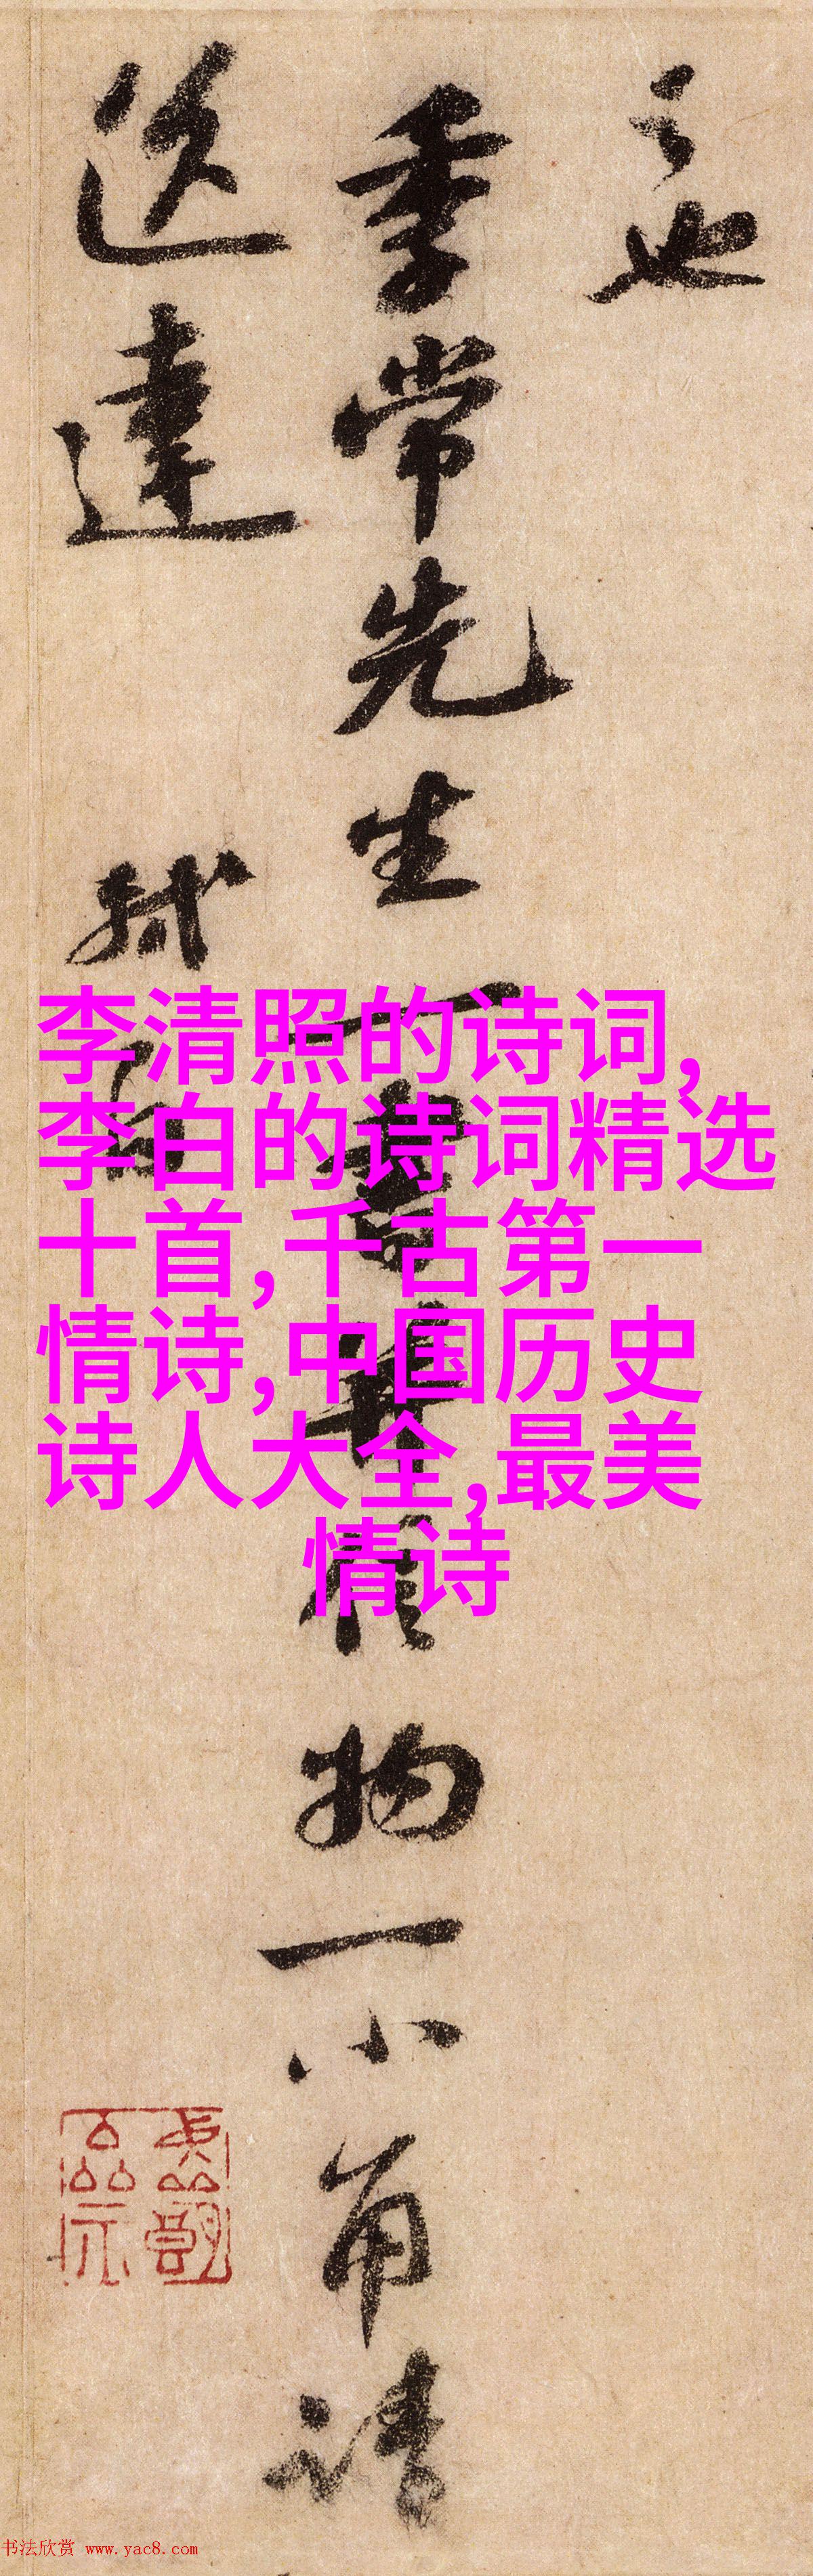 之也
季常先生一書并信物一小角請
送達
軾白
李清照的诗词,
李白的诗词精选
十首,千古第一
情诗,中国历史
诗人大全,最美
情诗
书法欣赏 www.yac8.com